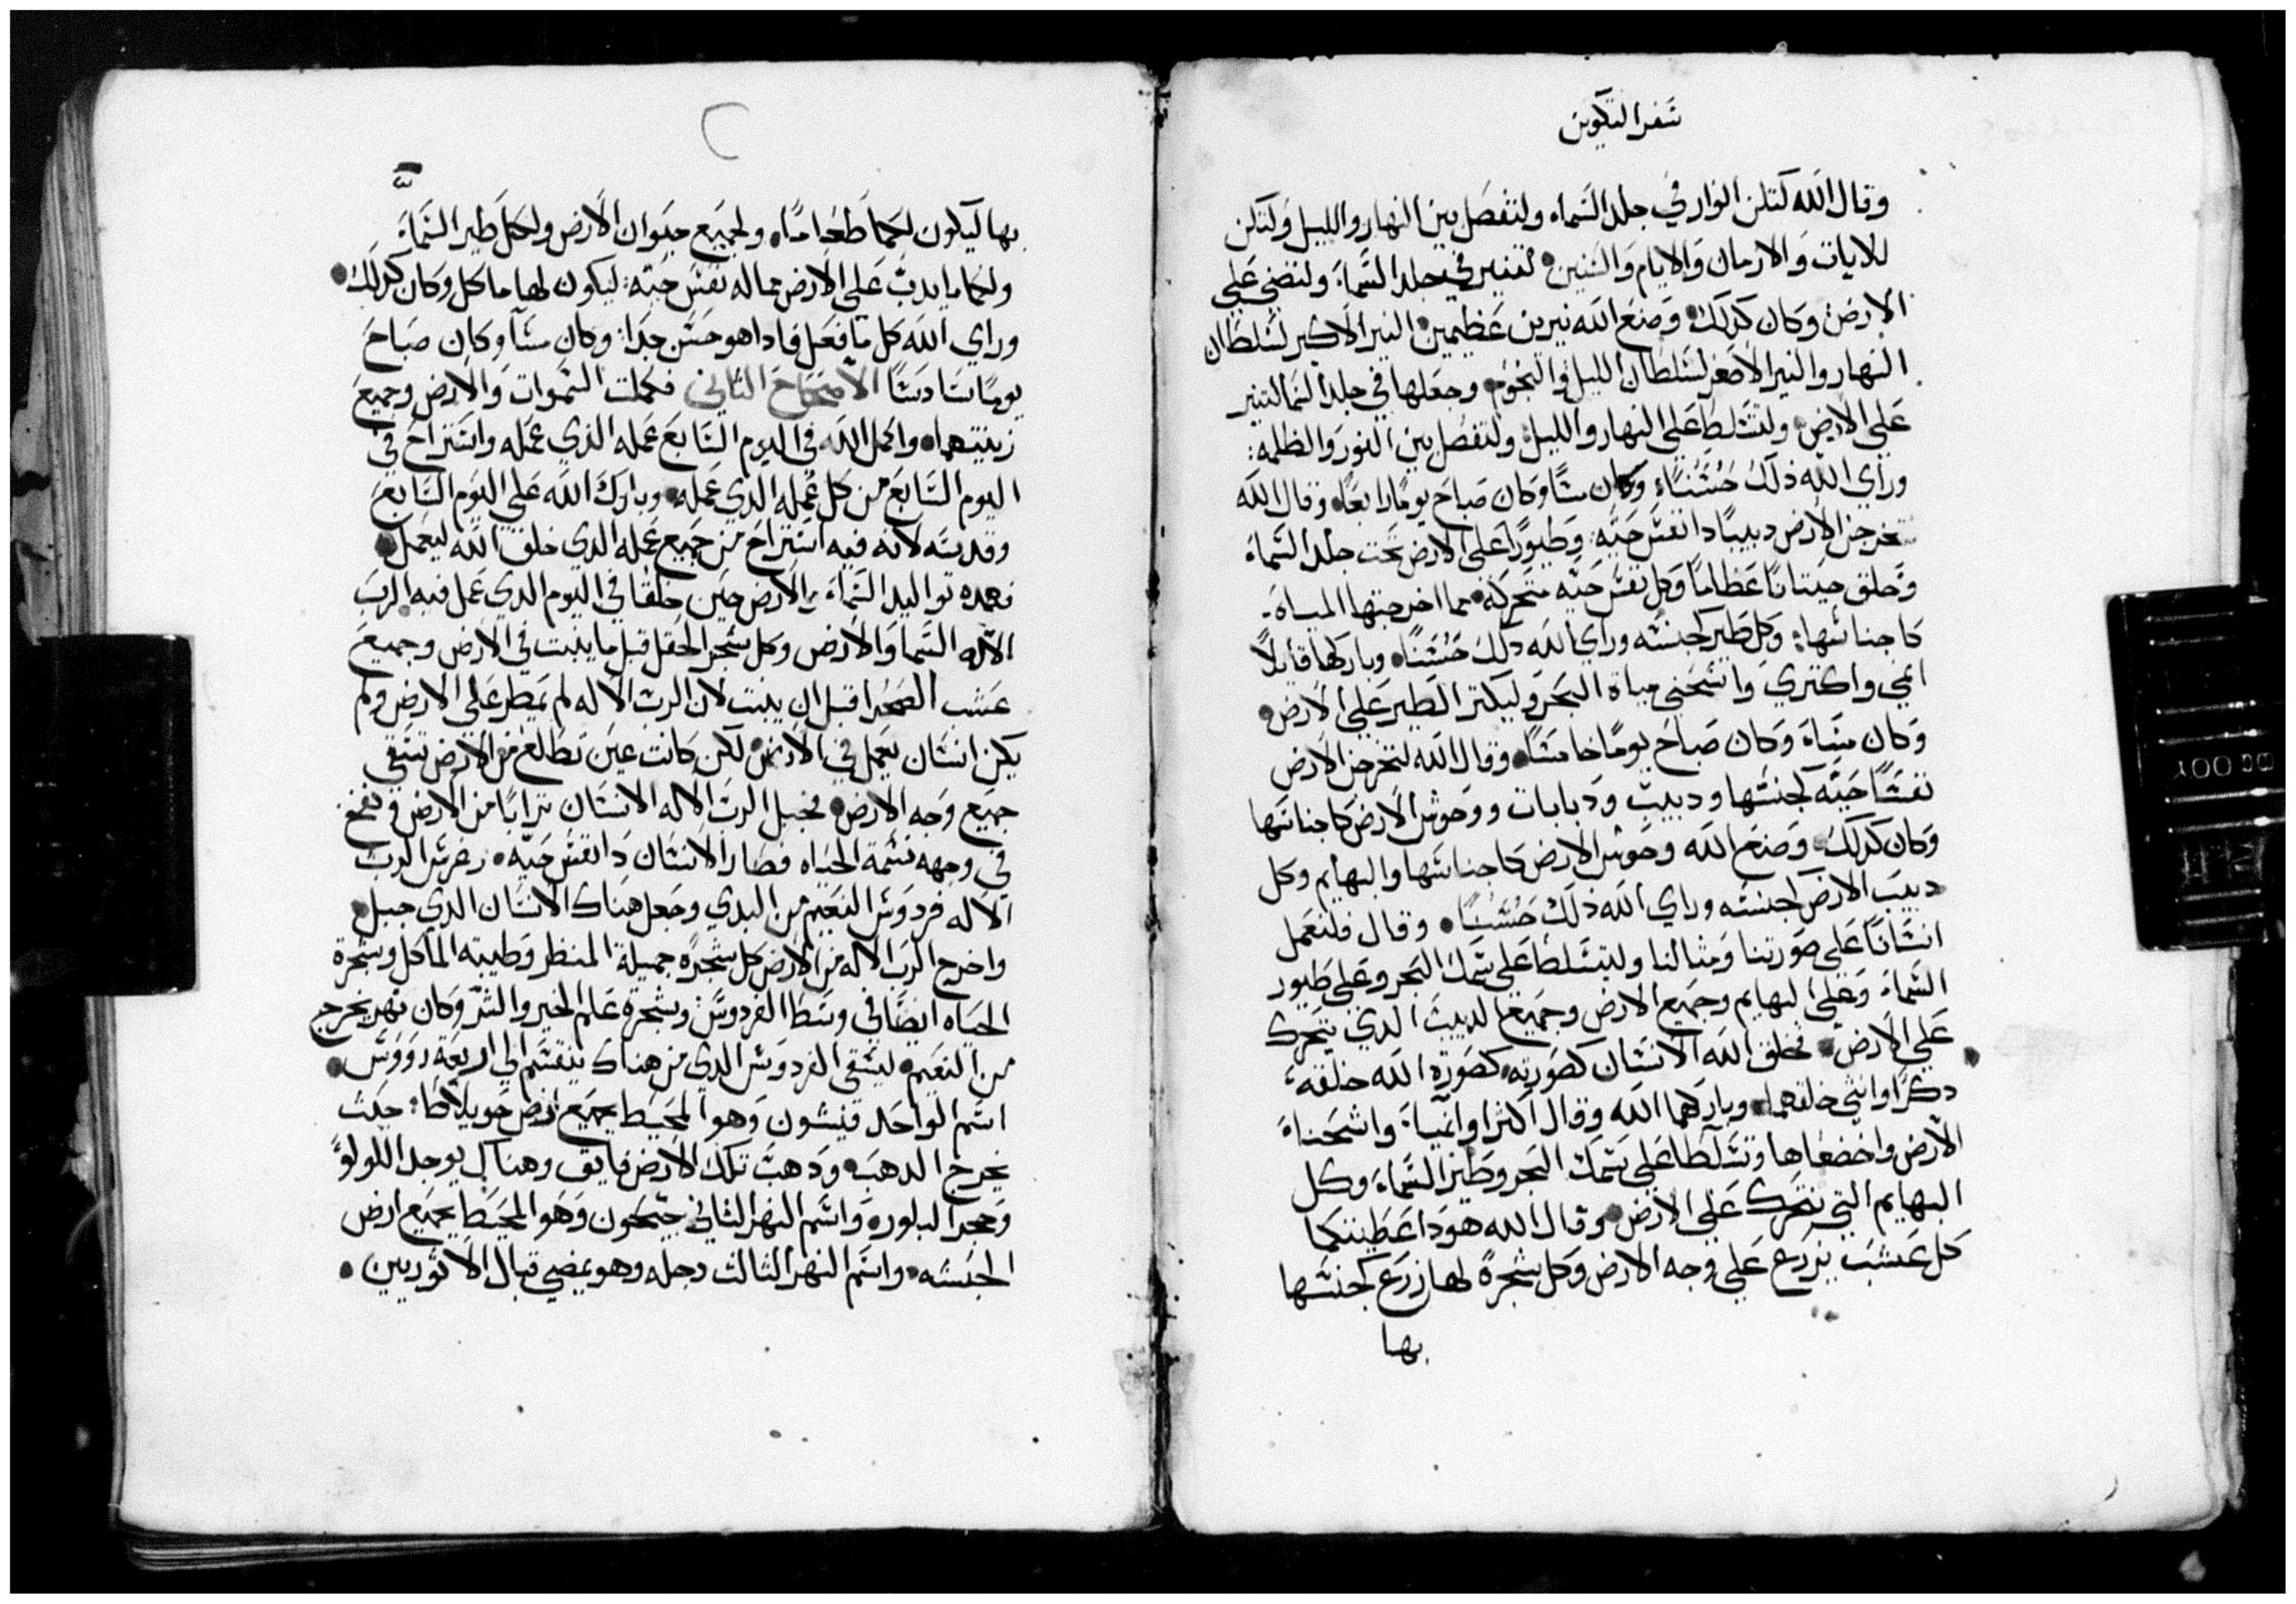 سفر التكوين
وقال الله لتكن انوار في جلد السماء ولتفصل بين النهار والليل ولتكن
للايات والازمان والايام والسنين لتنير في جلد السماء ولتضي علي
الارض وكان كذلك وصنع الله نيرين عظيمين النير الاكبر لسلطان
النهار والنير الاصغر لسلطان الليل والنجوم وجعلها في جلد السما لتنير
علي الارض ولتتسلط علي النهار والليل ولتفصل بين النور والظلمه
وراي الله ذلك حسناً وكان مسآ وكان صباح يومًا رابعًا وقال الله
لتخرجن الارض دبيبًا ذا نفس حيّه وطيورًا علي الارض تحت جلد السماء
وخلق حيتانًا عظامًا وكل نفس حيّه متحركه مما اخرجتها المياه
كاجناسها وكل طير كجنسه وراي الله ذلك حسنًا وباركها قايلاً
انمي واكتري واشحني مياه البحر وليكتر الطير علي الارض
وكان مساء وكان صباح يومًا خامسًا وقال الله لتخرجن الارض
نفسًا حيّه كجنسها ودبيب ودبابات ووحوش الارض كاجناسها
وكان كذلك وصنع الله وحوش الارض كاجناسها والبهايم وكل
دبيب الارض كجنسه وراي الله ذلك حسنًا وقال فلنعمل
انسانًا علي صورتنا ومثالنا وليتسلط علي سمك البحر وعلي طيور
السماء وعلي البهايم وجميع الارض وجميع الدبيب الذي يتحرك
علي الارض فخلق الله الانسان كصورته كصورة الله خلقه
ذكرًا وانثي خلقهما وباركهما الله وقال اكثرا وانميا واشحنا
الارض واخضعاها وتسلطا علي سمك البحر وطير السماء وكل
البهايم التي تتحرك علي الارض وقال الله هوذا اعطيتكما
كل عشب يزرع علي وجه الارض وكل شجرة لها زرع كجنسها
بها
بها ليكون لكما طعامًا ولجميع حيوان الارض ولكل طير السماء
ولكل ما يدب علي الارض مما له نفس حيّه ليكون لها ماكل وكان كذلك
وراي الله كل ما فعل فاذا هو حسن جدًا وكان مسآ وكان صباح
يومًا سادسًا الاصحاح الثاني فكملت السموات والارض وجميع
زينتهما واكمل الله في اليوم السابع عمله الذي عمله واستراح في
اليوم السابع من كل عمله الذي عمله وبارك الله علي اليوم السابع
وقدسه لانه فيه استراح من جميع عمله الذي خلق الله ليعمل
فهذه تواليد السماء والارض حين خلقا في اليوم الذي عمل فيه الرب
الاله السما والارض وكل شجر الحقل قبل ما ينبت في الارض وجميع
عشب الصحرا قبل ان ينبت لان الرب الاله لم يمطر علي الارض ولم
يكن انسان يعمل في الارض لكن كانت عين تطلع من الارض تسقي
جميع وجه الارض فجبل الرب الاله الانسان ترابًا من الارض ونفخ
في وجهه نسمة الحياه فصار الانسان ذا نفس حيّه وغرس الرب
الاله فردوس النعيم من البدي وجعل هناك الانسان الذي جبل
واخرج الرب الاله من الارض كل شجره جميلة المنظر وطيبه الماكل وشجرة
الحياه ايضًا في وسط الفردوس وشجرة علم الخير والشر وكان نهر يخرج
من النعيم ليسقي الفردوس الذي من هناك ينقسم الي اربعة رووس
اسم الواحد فيشون وهو المحيط بجميع ارض حويلاطا حيث
يخرج الذهب وذهب تلك الارض فايق وهناك يوجد اللولوً
وحجر البلور واسم النهر الثاني جيحون وهو المحيط بجميع ارض
الحبشه واسم النهر الثالث دجله وهو يمضي قبال الاثوريين